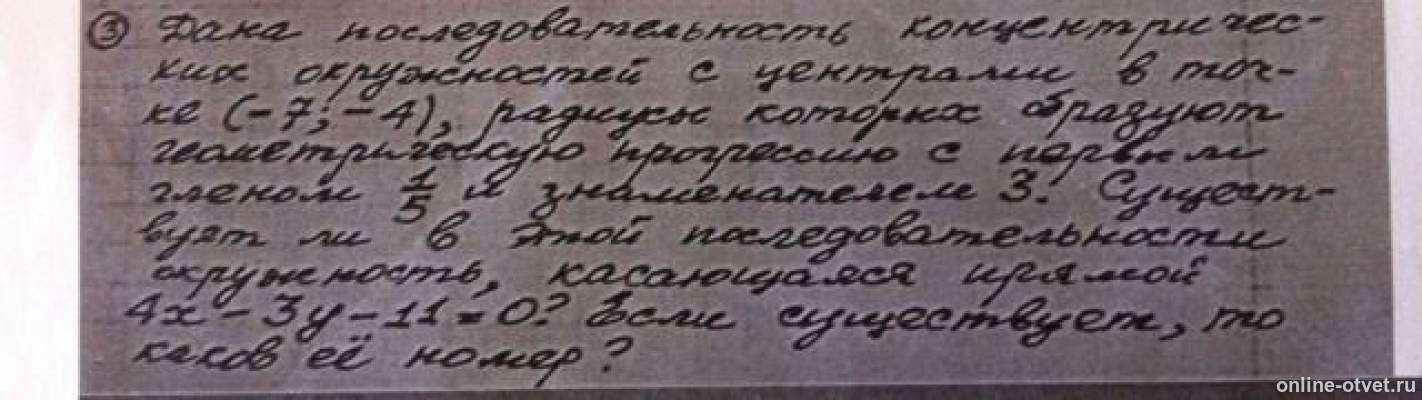 ③ Дана последовательность концентричес-
ких окружностей с центрами в точ-
ке (-7; -4), радиусы которых образуют
геометрическую прогрессию с первым
членом 1/5 и знаменателем 3. Сущест-
вует ли в этой последовательности
окружность, касающаяся прямой
4x - 3y - 11 = 0? Если существует, то
каков её номер?
online-otvet.ru